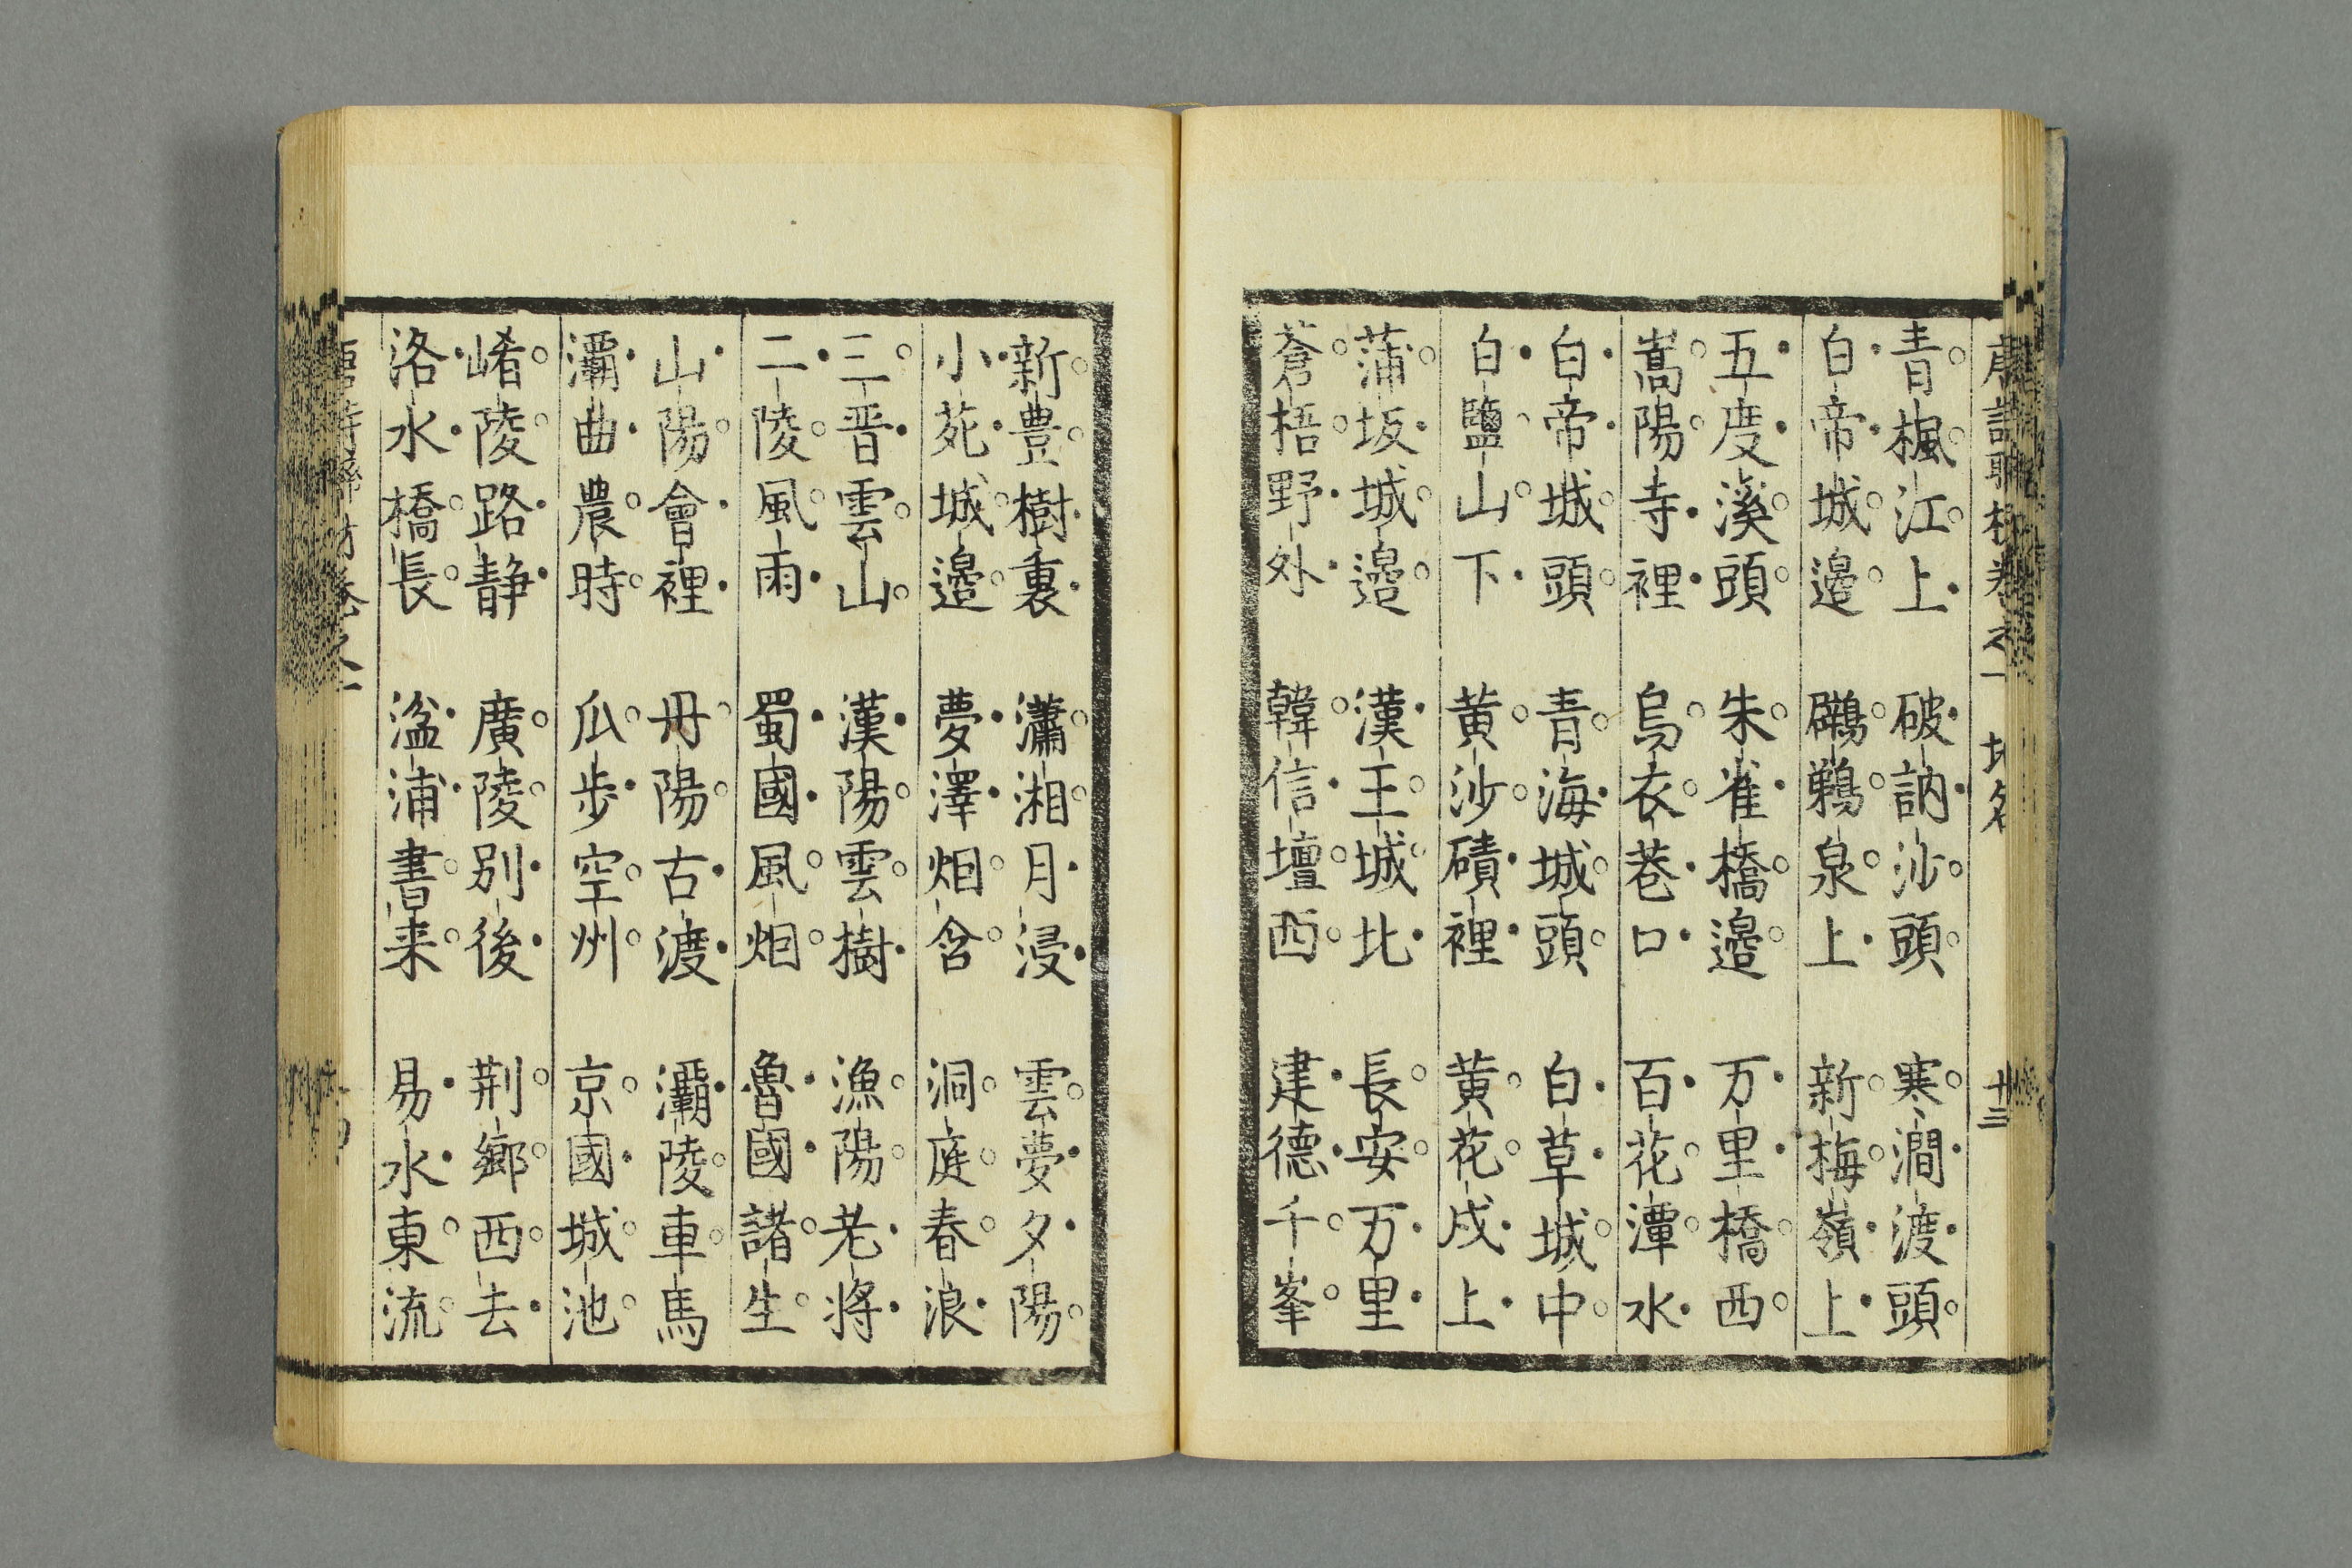 唐詩聯材卷之一 地名 十三
青楓江上 破訥沙頭 寒澗渡頭
白帝城邉 鸊鵜泉上 新梅嶺上
五度溪頭 朱雀橋邉 万里橋西
嵩陽寺裡 烏衣巷口 百花潭水
白帝城頭 青海城頭 白草城中
白鹽山下 黄沙磧裡 黄花戍上
蒲坂城邉 漢王城北 長安万里
蒼梧野外 韓信壇西 建德千峯
新豊樹裏 瀟湘月浸 雲夢夕陽
小苑城邉 夢澤烟含 洞庭春浪
三晋雲山 漢陽雲樹 漁陽老將
二陵風雨 蜀國風烟 魯國諸生
山陽會裡 丹陽古渡 灞陵車馬
灞曲農時 瓜步空州 京國城池
崤陵路静 廣陵別後 荆鄉西去
洛水橋長 湓浦書来 易水東流